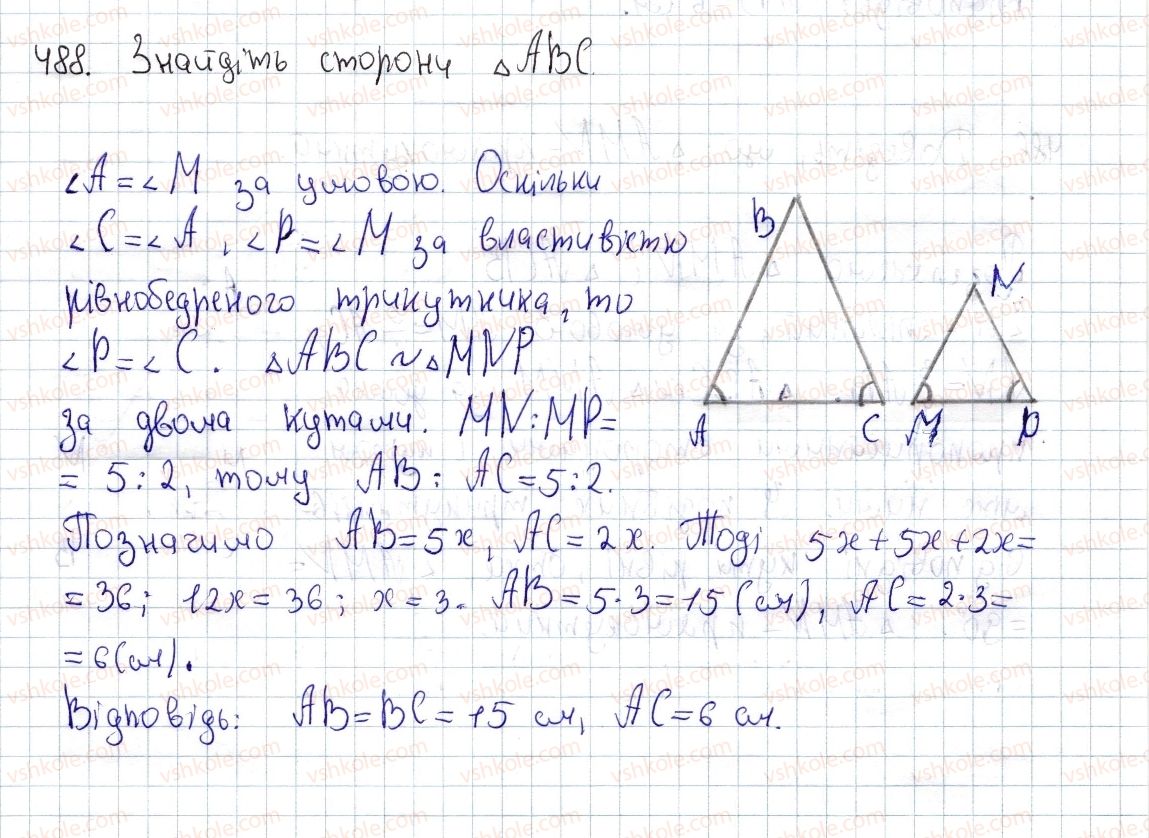 488. Знайдіть сторони △ABC.
∠A=∠M за умовою. Оскільки
∠C=∠A, ∠P=∠M за властивістю
рівнобедреного трикутника, то
∠P=∠C. △ABC ~ △MNP
за двома кутами. MN:MP=
= 5:2, тому AB: AC=5:2.
Позначимо AB=5x, AC=2x. Тоді 5x+5x+2x=
=36; 12x=36; x=3. AB=5·3=15(см), AC=2·3=
=6(см).
Відповідь: AB=BC=15 см, AC=6 см.
B
N
A
C
M
P
vshkole.com